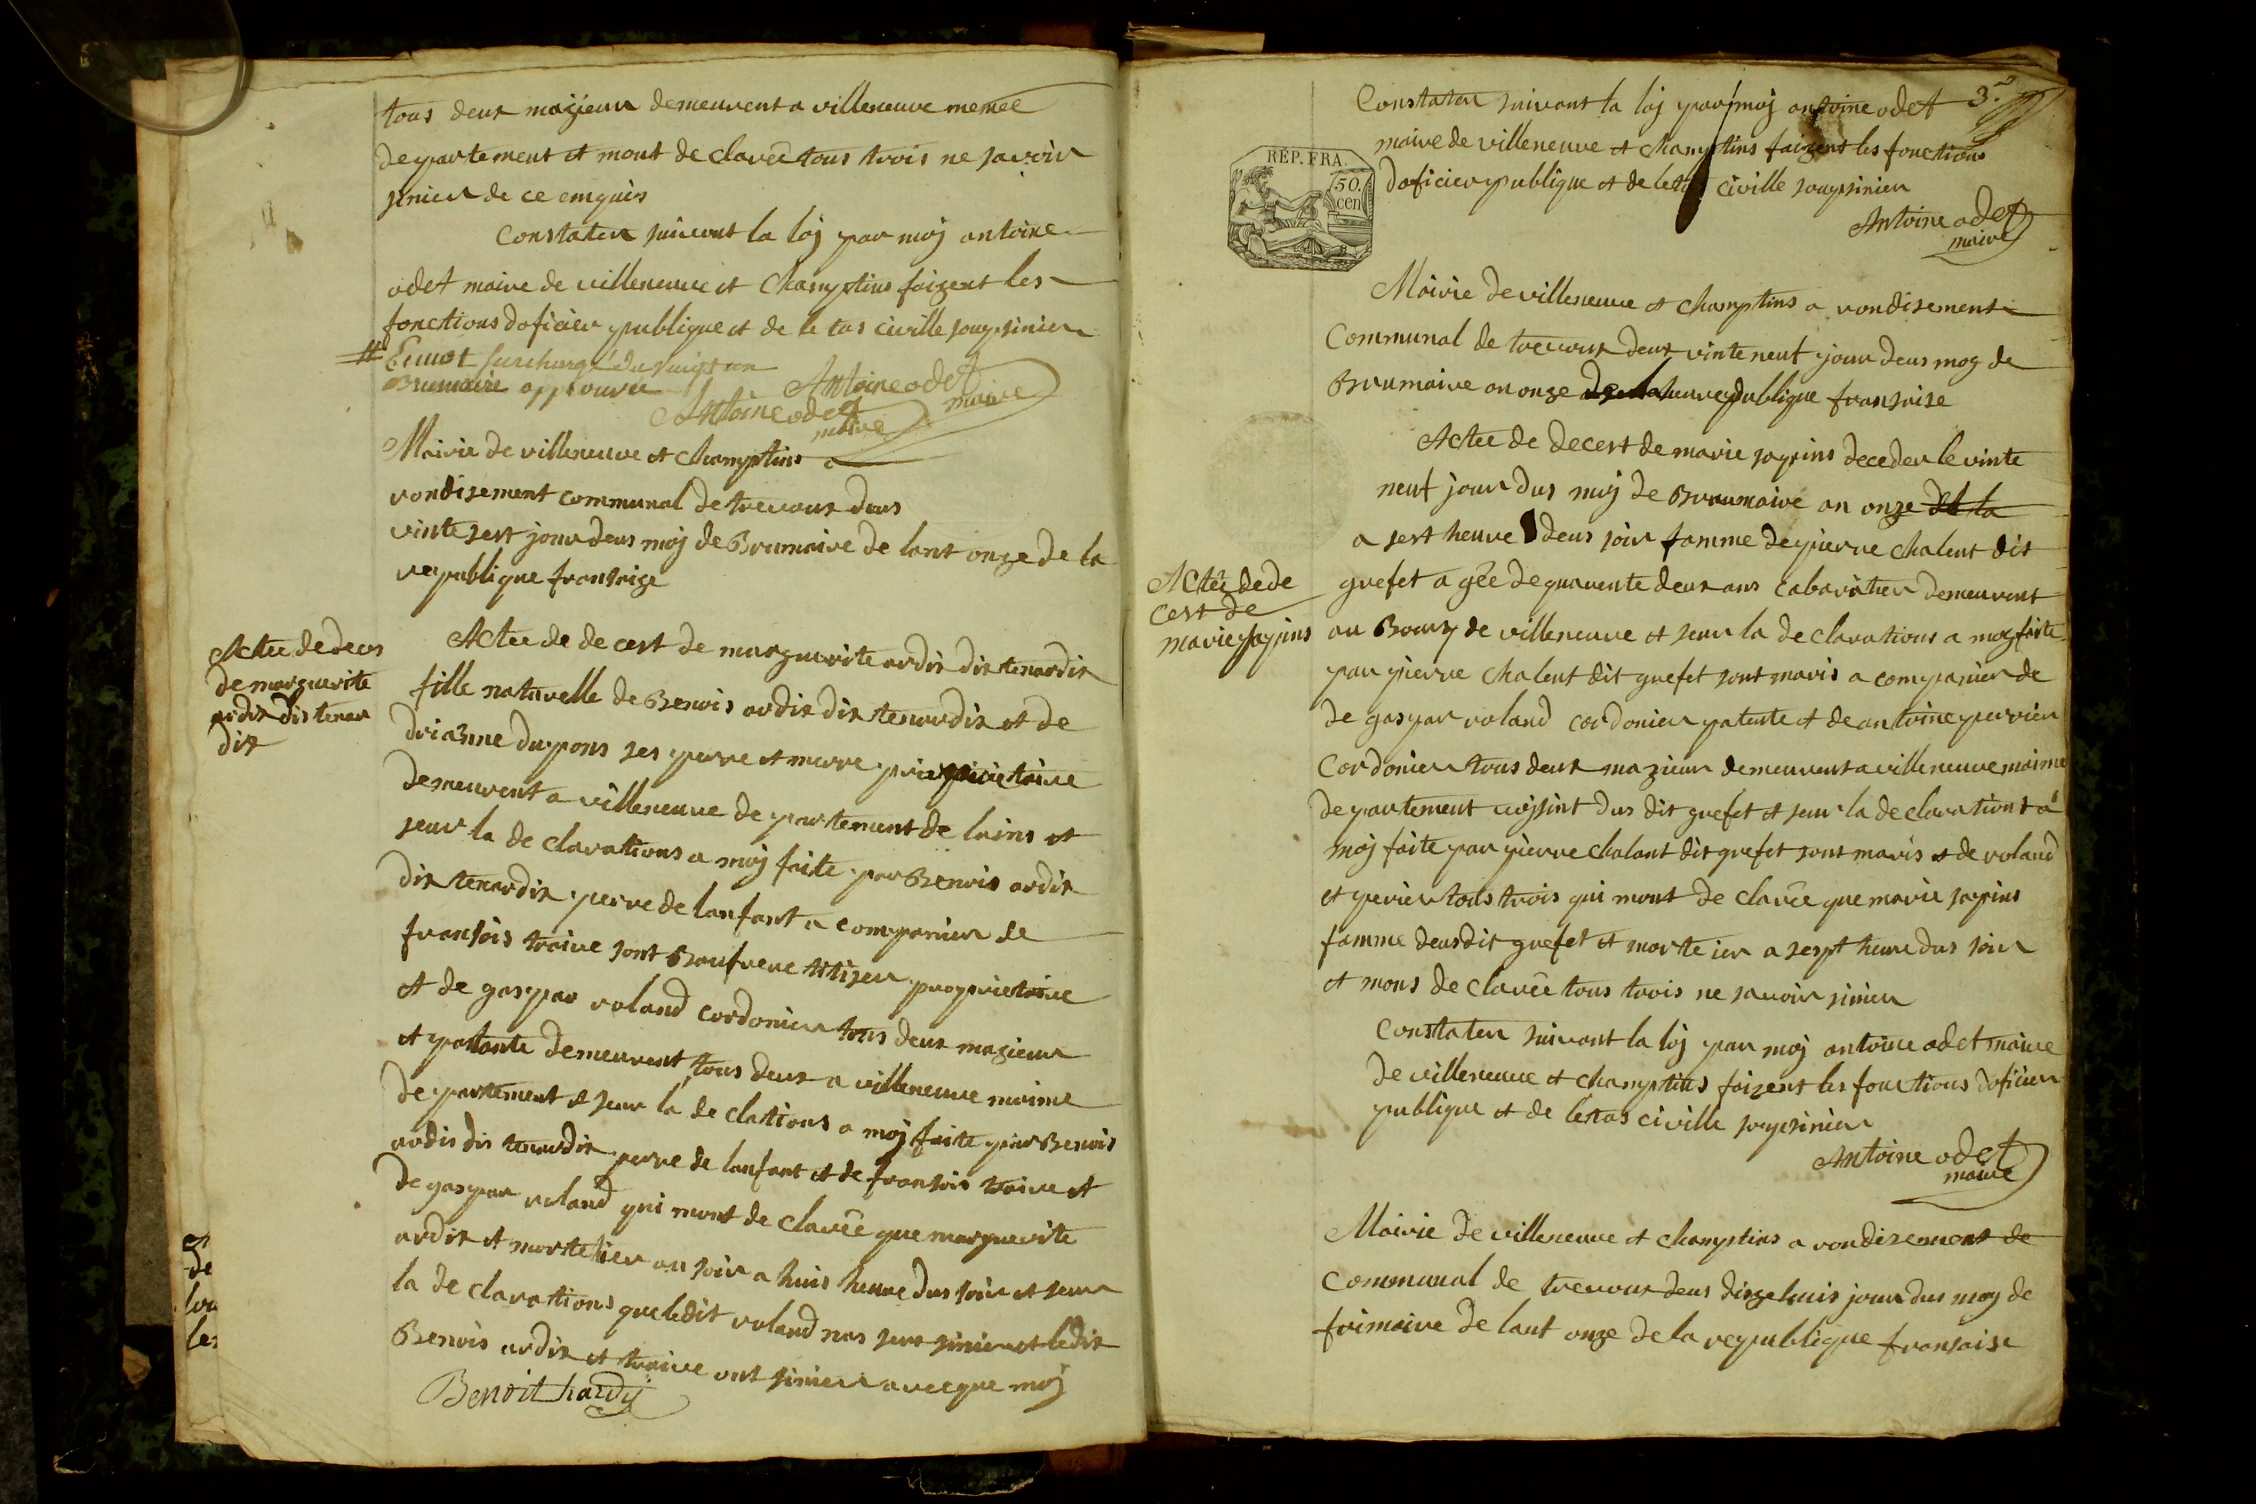 tous deux majieur demeurent a villeneuve memee
departement et mont de clarée tous trois ne savoir
sinier de ce enquis
Constater suivant la loj par moj antoine
odet maire de villeneuve et Champtins faizent les
fonctions doficier publique et de le tas civille sousinier
# Le mot surchargé du
Brumaire approuvée
Antoine odet
maire
Antoine odet
maire
Mairie de villeneuve et Champtins a
rondisement communal de trevoux deus
vinte sest jour deus moj de Brumaire de lant onze de la
republique fransaize
Actee de deces
de marguerite
ardit dit tenar
dit
Actee de de cest de marguerite ardit dit tenardit
fille naturelle de Benois ardit dit tenardit et de
drianne dupons ses perre et merre proprietaire
demeurent a villeneuve departement de lains et
seur la de clarations a moj faite par Benois ardit
dit tenardit perre de lanfant a companier de
fransois traive sont Baufrere proprietaire
et de gaspar roland cordonier tous deux mazieur
et patante demeurent tous deux a villeneuve maime
departement et seur la de clations a moj faite par Benois
ardis dis tenardit perre de lanfant et de fransois traive et
de gaspar roland qui mont de clarée que marguerite
ardit et morte hier au soir a huis heure dus soir et seur
la de clarations que ledit roland nas seus sinier et ledit
Benois ardit et traive ont sinier avecque moj
Benoit hardy
3.
Constater suivant la loj par moj antoine odet
maire de villeneuve et Champtins faizent les fonctions
doficier publique et de letas civille sousinier
REP. FRA.
50.
cen
Antoine odet
maire
Mairie de villeneuve et Champtins a rondisement
Communal de trevoux deux vinte neuf jour deus moy de
Brumaire an onze republique fransaise
Actee de decest de marie sapins deceder le vinte
neuf jour dus moj de Brumaire an onze de la
a sest heure deus soir famme de pierre Chalent dit
Actee de de
cest de
marie sapins
grefet a gée de quarente deux ans cabaratier demeurent
au Bourg de villeneuve et seur la de clarations a moy faite
par pierre Chalent dit grefet sont maris a companier de
de gaspar roland cordonier patente et de antoine perrier
Cordonier tous deux mazieur demeurent a villeneuve maime
departement voissint dus dit grefet et seur la de clarations a
moj faite par pierre Chalant dit grefet sont maris et de roland
et perier tous trois qui mont de clarée que marie sapins
famme deusdit grefet et morte ier a sept heure dus soir
et mons de clarée tous trois ne savoir sinier
Constater suivant la loj par moj antoine odet maire
de villeneuve et Champtins faizent les fonctions doficier
publique et de letas civille sousinier
Antoine odet
maire
Mairie de villeneuve et Champtins a rondisement de
Communal de trevoux deus dizehuis jour dus moy de
frimaire de lant onze de la republique fransaise